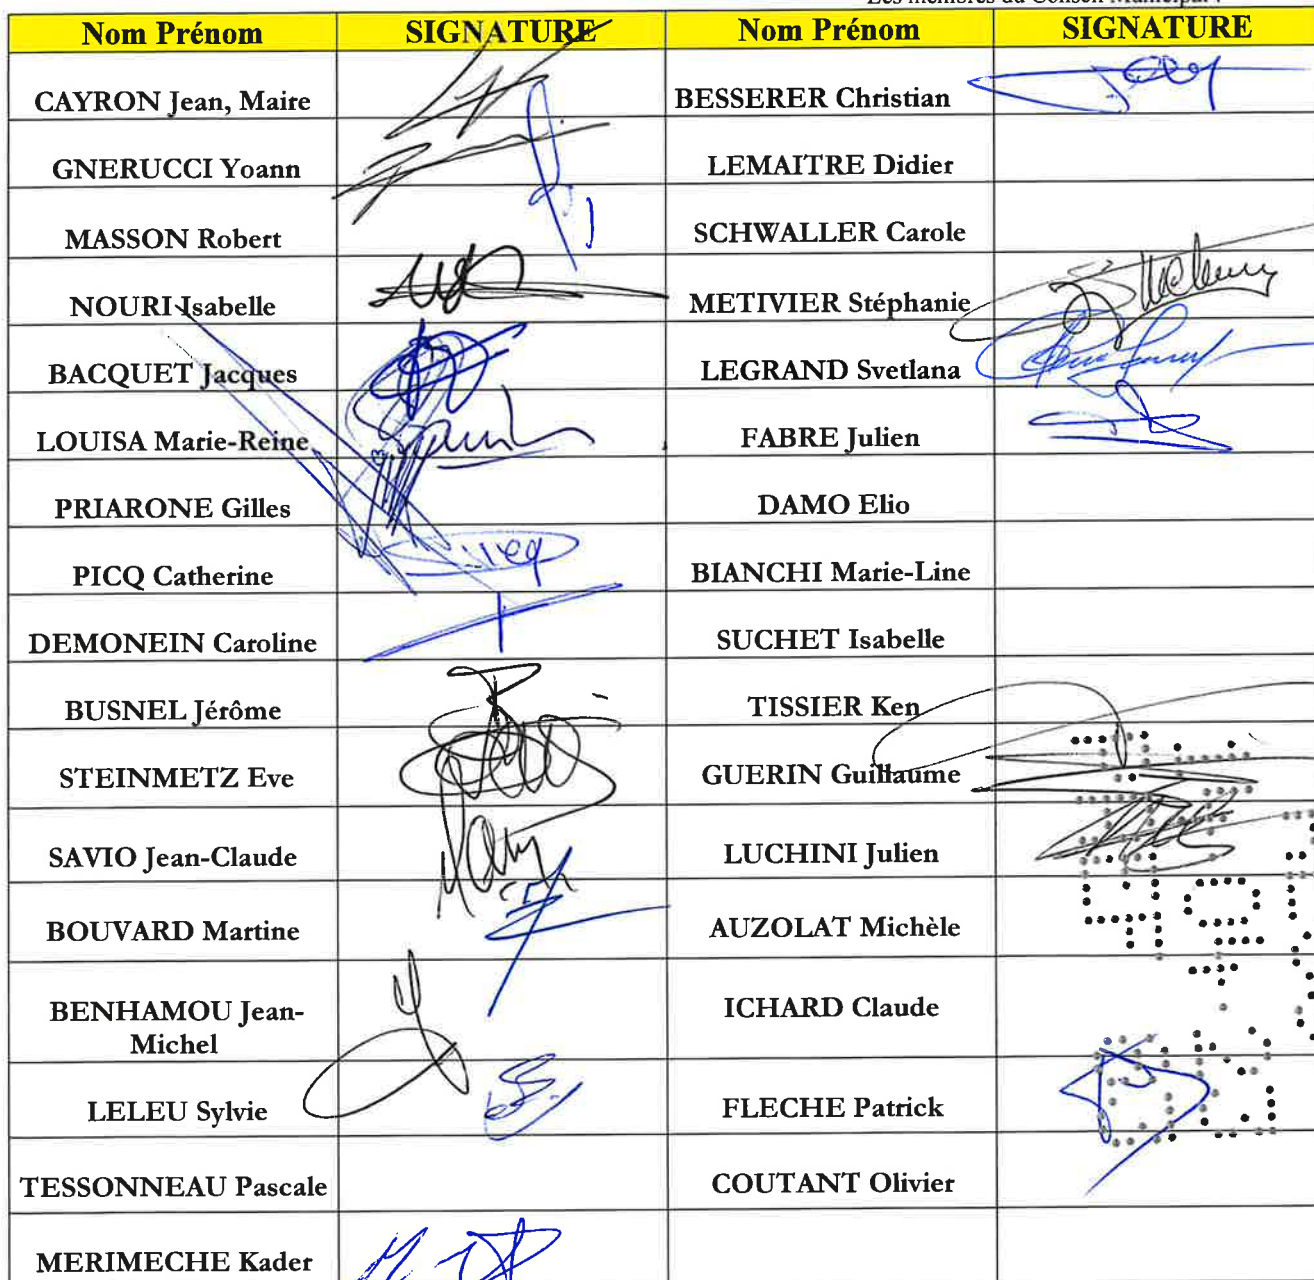 Les membres du Conseil Municipal :
Nom Prénom SIGNATURE Nom Prénom SIGNATURE
CAYRON Jean, Maire BESSERER Christian
GNERUCCI Yoann LEMAITRE Didier
MASSON Robert SCHWALLER Carole
NOURI Isabelle METIVIER Stéphanie
BACQUET Jacques LEGRAND Svetlana
LOUISA Marie-Reine FABRE Julien
PRIARONE Gilles DAMO Elio
PICQ Catherine BIANCHI Marie-Line
DEMONEIN Caroline SUCHET Isabelle
BUSNEL Jérôme TISSIER Ken
STEINMETZ Eve GUERIN Guillaume
SAVIO Jean-Claude LUCHINI Julien
BOUVARD Martine AUZOLAT Michèle
BENHAMOU Jean-
Michel ICHARD Claude
LELEU Sylvie FLECHE Patrick
TESSONNEAU Pascale COUTANT Olivier
MERIMECHE Kader